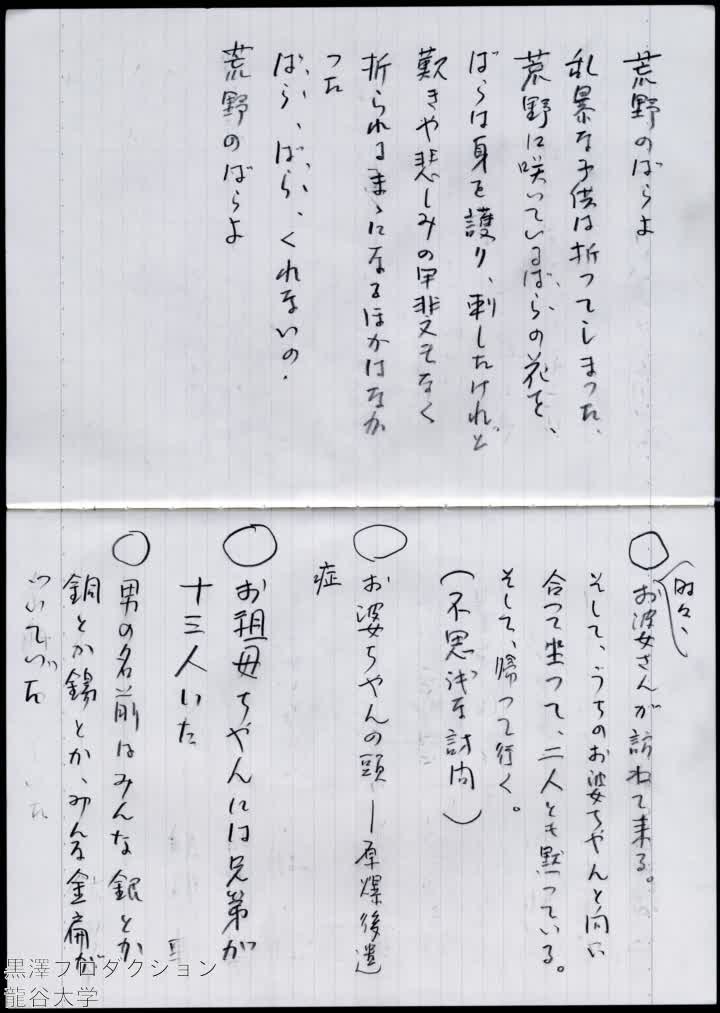 荒野のばらよ
乱暴な子供は折つてしまつた、
荒野に咲いているばらの花を、
ばらは身を護り、刺したけれど
歎きや悲しみの甲斐もなく
折られるまゝになるほかはなか
つた
ばら、ばら、くれないの、
荒野のばらよ
時々、
○お婆さんが訪ねて来る。
そして、うちのお婆ちやんと向い
合つて坐つて、二人とも黙つている。
そして、帰つて行く。
(不思議な訪問)
○お婆ちやんの頭ー原爆後遺
症
○お祖母ちやんには兄弟が
十三人いた
○男の名前はみんな銀とか
銅とか錫とか、みんな金扁が
ついていた
黒澤プロダクション
龍谷大学